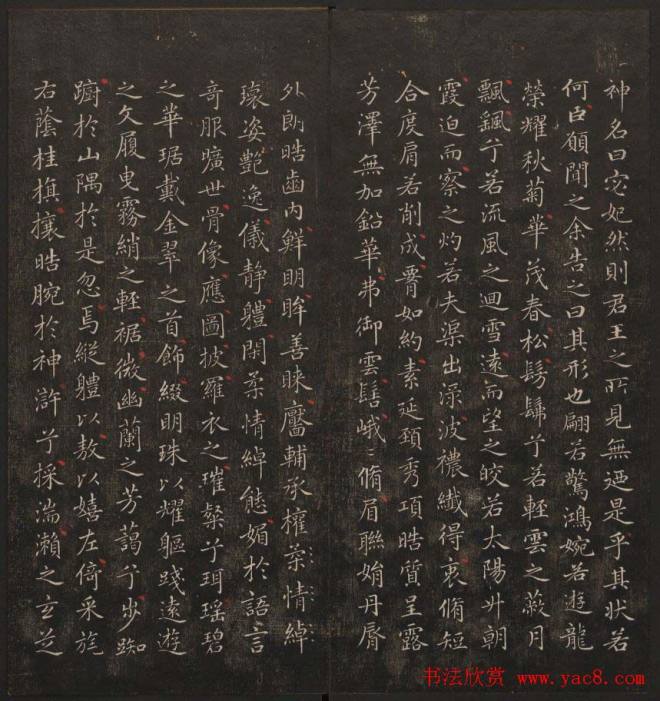 神名曰宓妃然則君王之所見無迺是乎其狀若
何臣願聞之余告之曰其形也翩若驚鴻婉若遊龍
榮耀秋菊華茂春松髣髴兮若輕雲之蔽月
飄颻兮若流風之迴雪遠而望之皎若太陽升朝
霞迫而察之灼若夫渠出渌波襛纖得衷脩短
合度肩若削成腰如約素延頸秀項皓質呈露
芳澤無加鉛華弗御雲髻峨〻脩眉聯娟丹脣
外朗皓齒內鮮明眸善睞靨輔承權柔情綽
瓌姿艷逸儀靜體閑柔情綽態媚於語言
奇服曠世骨像應圖披羅衣之璀粲兮珥瑤碧
之華琚戴金翠之首飾綴明珠以耀軀踐遠遊
之文履曳霧綃之輕裾微幽蘭之芳藹兮步踟
躕於山隅於是忽焉縱體以敖以嬉左倚采旄
右蔭桂旗攘皓腕於神滸兮採湍瀨之玄芝
书法欣赏 www.yac8.com